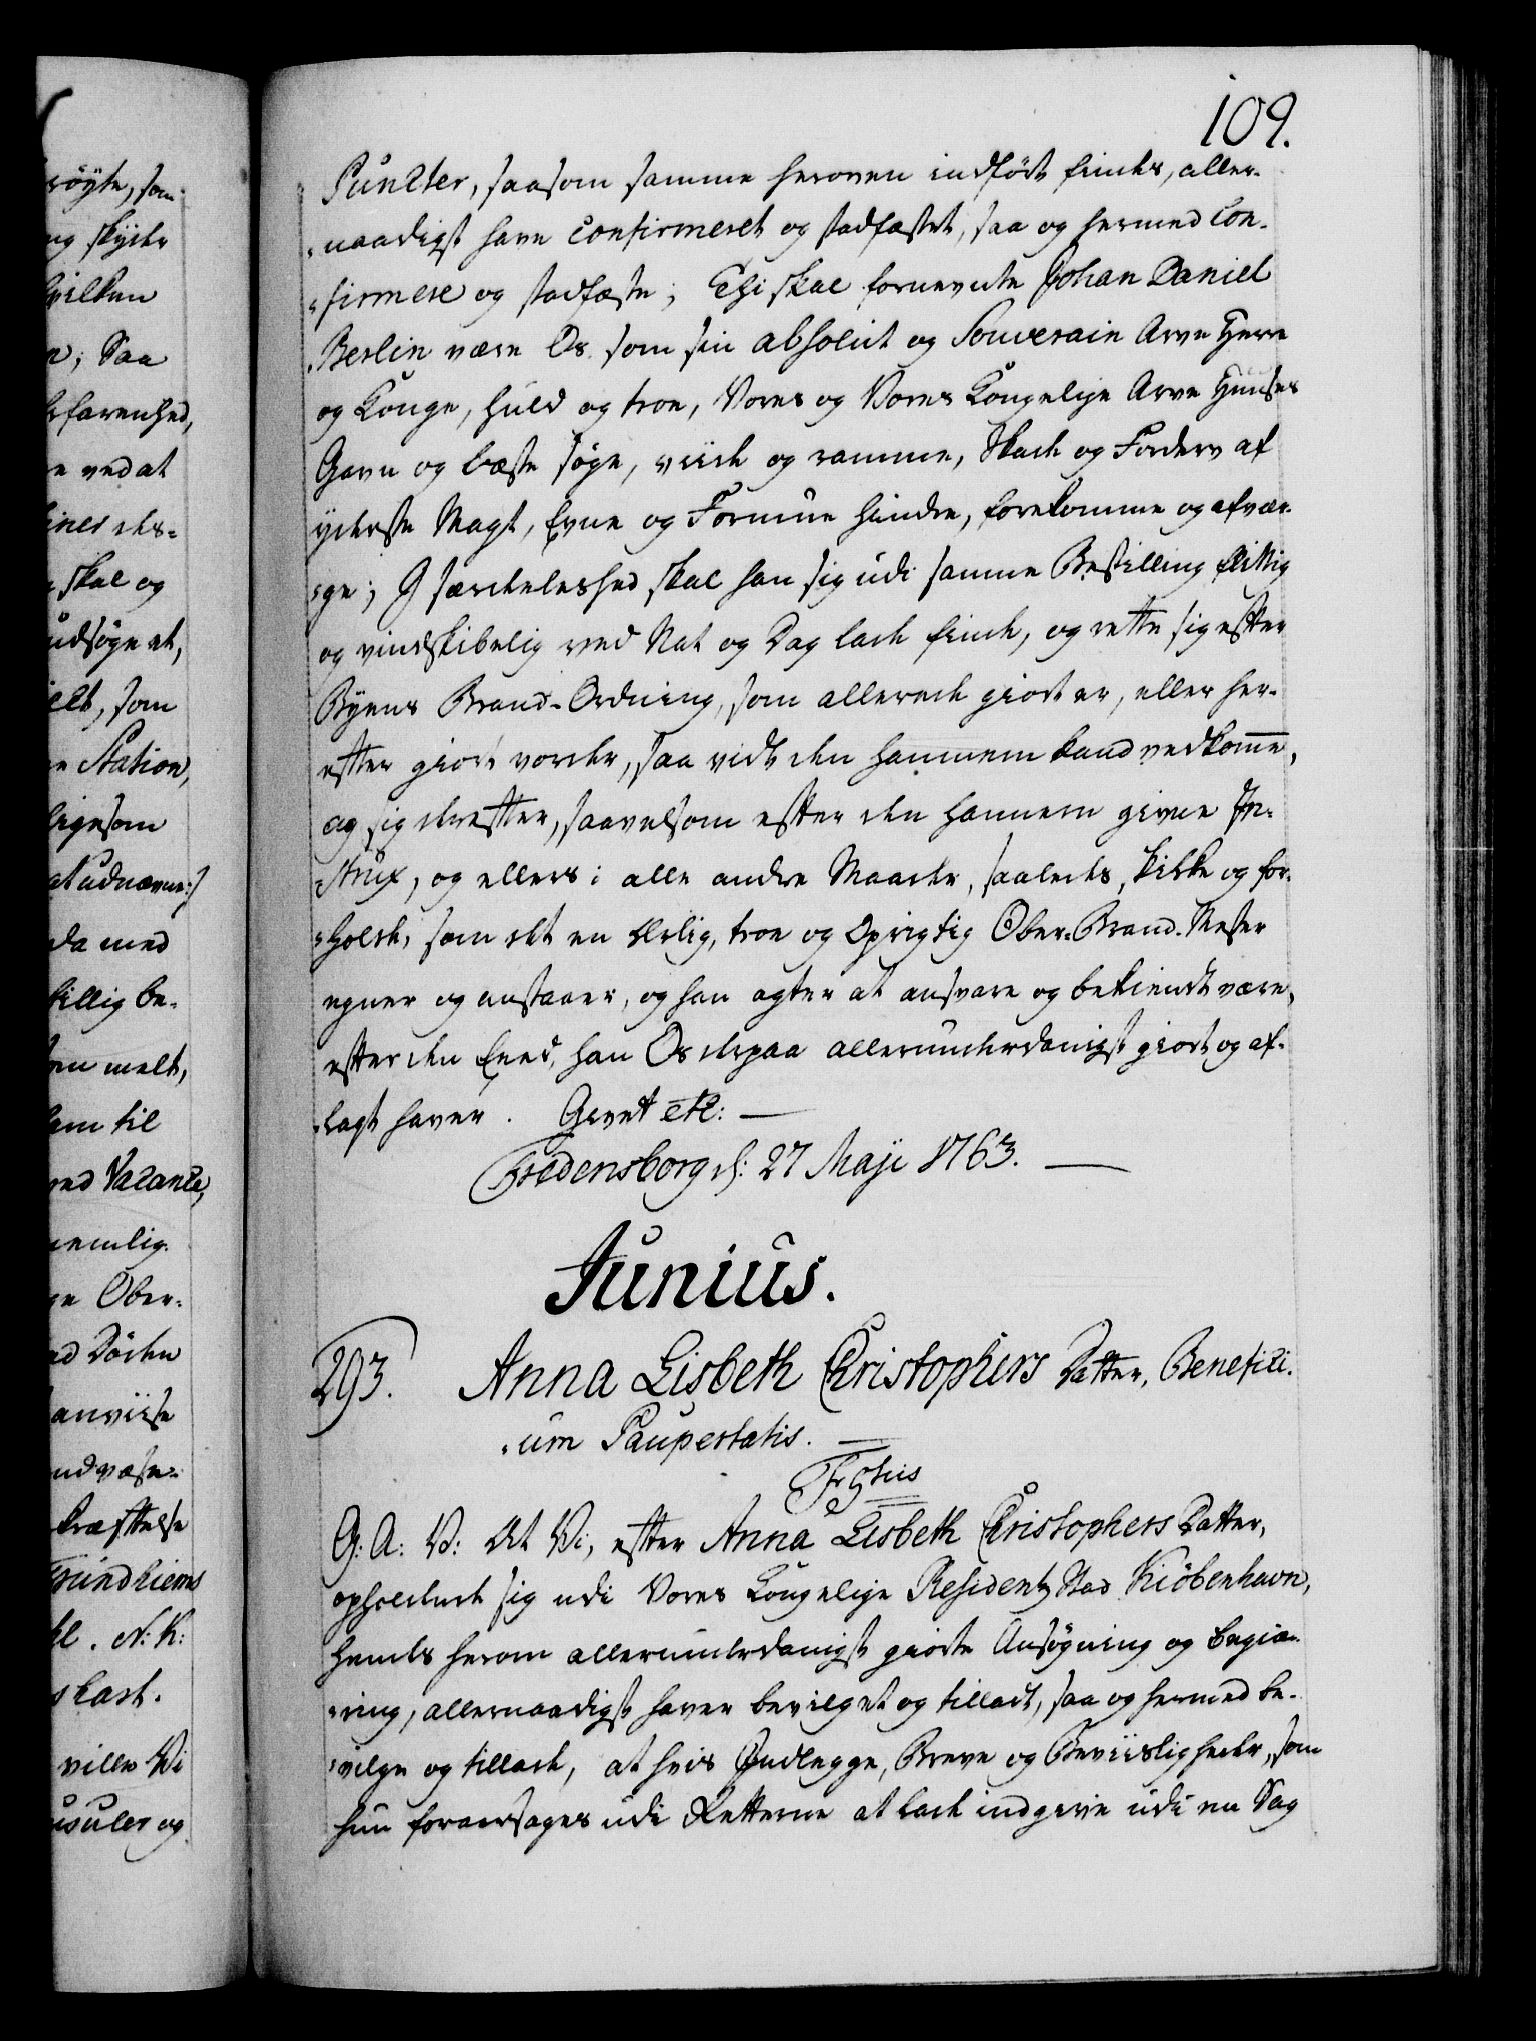 109.
Puncter, saasom samme heroven indført findes, aller-
naadigst have confirmeret og stadfæstet, saa og hermed con-
firmere og stadfæste; Thi skal fornevnte Johan Daniel
Berlin være Os som sin absolut og Souverain Arve Herre
og Konge, huld og troe, Vores og Vores Kongelige Arve Huuses
Gavn og bæste søge, viide og ramme, Skade og Fordærv af
yderste Magt, Evne og Formue hindre, forekomme og afvær-
ge; I særdeleshed skal han sig udi samme Bestilling flittig
og vindskibelig ved Nat og Dag lade finde, og rette sig efter
Byens Brand-Ordning, som allerede giort er, eller her-
efter giort vorder, saa vidt den hannem kand vedkomme,
og sig derefter, saavelsom efter den hannem givne In-
strux, og ellers i alle andre Maader, saaledes skikke og for-
holde, som det en ærlig, troe og oprigtig Ober-Brand-Mester
egner og anstaaer, og han agter at ansvare og bekiendt være,
efter den Eeed, han Os derpaa allerunderdanigst giort og af-
lagt haver. Givet etc: —
Fredensborg d: 27 Maji 1763. —
Junius.
293. Anna Lisbeth Christophers Datter, Benefici-
um Paupertatis. —
G: A: V: At Vi, efter Anna Lisbeth Christophers Datter,
opholdende sig udi Vores Kongelige Residentz Stad Kiöbenhavn,
hendes herom allerunderdanigst giorte Ansøgning og begiæ-
ring, allernaadigst haver bevilget og tilladt, saa og hermed be-
vilge og tillade, at hvis Indlegge, Breve og Beviisligheder, som
hun foraarsages udi Retterne at lade indgive udi en Sag
røyte, som
skyde
hvilken
Saa
erfarenhed,
ved at
skal og
udsøge et,
som
Station,
ligesom
at udnævne:/
da med
tillig be-
melt,
ham til
Vacance,
nemlig
Ober-
Døden
anviise
Trundhiems
N: K:
ville Vi
og